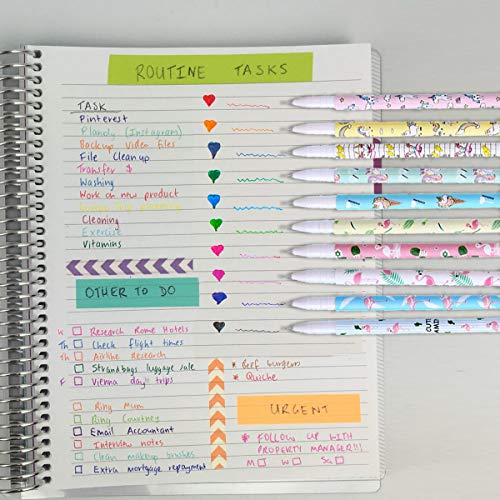 ROUTINE TASKS
TASK
Pinterest
Planoly (Instagram)
Backup video files
File Clean up
Transfer $
Washing
Work on new product
Cleaning
Exercise
Vitamins
OTHER TO DO
W Research Rome Hotels
Th Check flight times
Th Airline Research
Strandbags luggage sale
F Vienna day trips
* Beef burgers
* Quiche
Ring Mum
Ring Courtney
Email Accountant
Interview notes
Clean makeup brushes
Extra mortgage repayment
URGENT
* FOLLOW UP WITH
PROPERTY MANAGER!!!
M W Sa